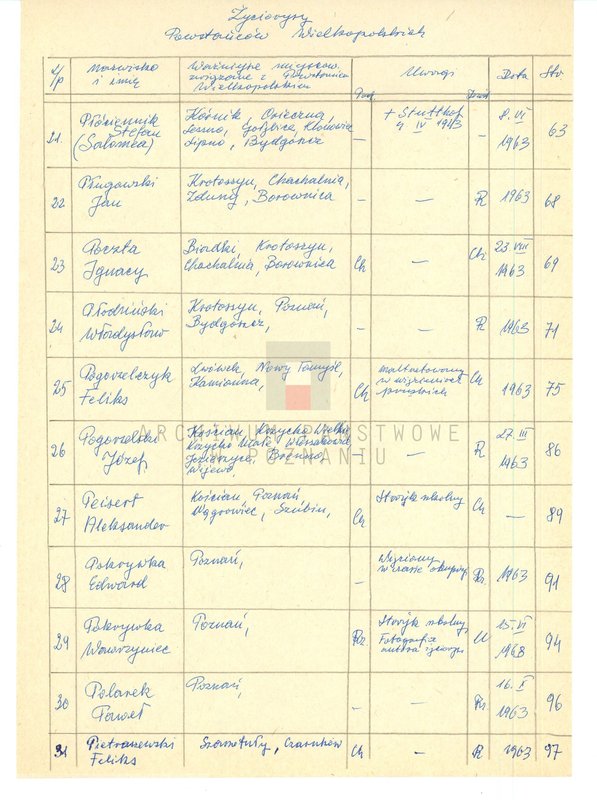 Życiorysy
Powstańców Wielkopolskich
L/p Nazwisko i imię Ważniejsze miejscow. związane z Powstaniem Wielkopolskim Uwagi Data Str.
21. Płóciennik Stefan (Salomea) Kórnik, Osieczna, Leszno, Gołańcz, Kłonowiec Lipno, Bydgoszcz – + Stutthof 4 IV 1943 – 8. VI 1963 63
22 Pługowski Jan Krotoszyn, Chachalnia, Zduny, Borownica – – R 1963 68
23 Poczta Ignacy Biadki, Krotoszyn, Chachalnia, Borownica Ch – Ch 23. VIII 1963 69
24 Włodysław Krotoszyn, Poznań, Bydgoszcz, – – R 1963 71
25 Pogorzelczyk Feliks Lwówek, Nowy Tomyśl, Kamionna, Ch maltretowany w więzieniach pruskich Ch 1963 75
ARCHIWUM PAŃSTWOWE
W POZNANIU
26 Pogorzelski Józef Kościan, Krzycko Wielkie Krzycko Małe, Włoszakowice Jezierzyce, Brenno, Wijewo, – R 27. III 1963 86
27 Peisert Aleksander Kościan, Poznań Wągrowiec, Szubin, Ch Storyk szkolny Ch – 89
28 Pokrywka Edward Poznań, – Więziony w czasie okupacji Rz. 1963 91
29 Pokrywka Wawrzyniec Poznań, Rz Storyk szkolny, Fotografia autora życiorysu U 15. VI 1968 94
30 Polarek Paweł Poznań, – – Rz. 16. X 1963 96
31 Pietraszewski Feliks Szamotuły, Czarnków Ch – R 1963 97